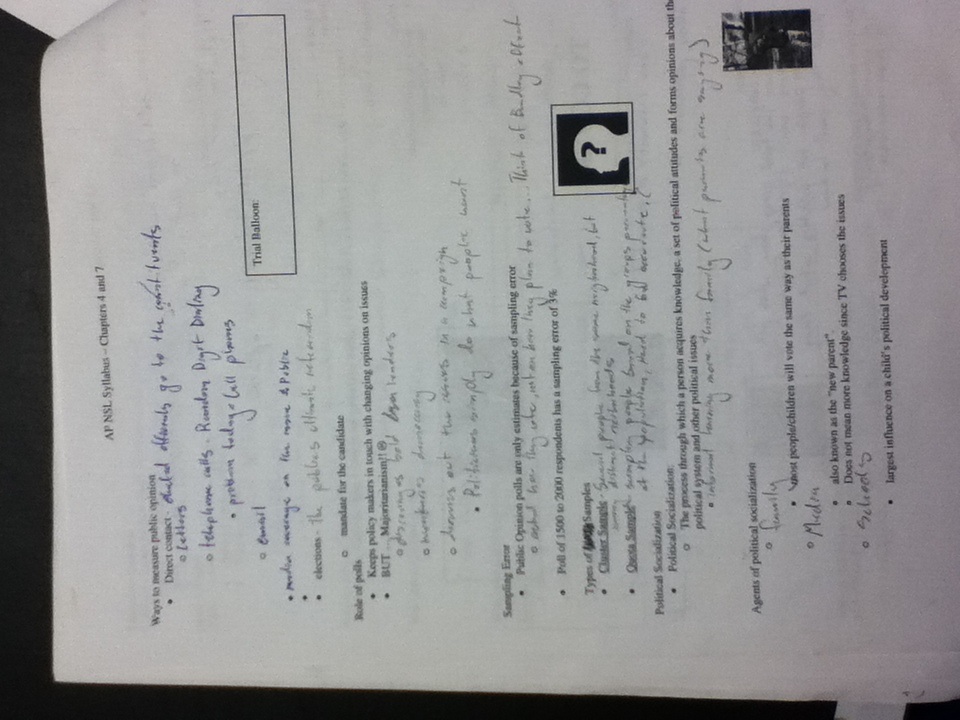 AP NSL Syllabus – Chapters 4 and 7
Ways to measure public opinion
• Direct contact - elected officials go to the constituents
o Letters
o telephone calls - Random Digit Dialing
• problem today = Cell phones
o email
Trial Balloon:
• media coverage on the issue & Public
•
• elections - The publics ultimate referendum
o mandate for the candidate
Role of polls
• Keeps policy makers in touch with changing opinions on issues
• BUT … Majoritarianism!! ☹
o discourages bold leaders
o democracy
o drowns out the issues in a campaign
• Politicians simply do what people want
Sampling Error
• Public Opinion polls are only estimates because of sampling error
o how they vote, how they plan to vote... Think of Bradley effect
• Poll of 1500 to 2000 respondents has a sampling error of 3%
Types of Samples
• Cluster Sample - Several people from the same neighborhood, but
distinct neighborhoods
• Quota Sample - sampling people based on the groups percentage
of the population, Hard to be accurate,
?
Political Socialization
• Political Socialization:
o The process through which a person acquires knowledge, a set of political attitudes and forms opinions about the
political system and other political issues
• informal learning more than family (what parents are saying)
Agents of political socialization
o family
• most people/children will vote the same way as their parents
o Media
• also known as the "new parent"
• Does not mean more knowledge since TV chooses the issues
o Schools
• largest influence on a child's political development